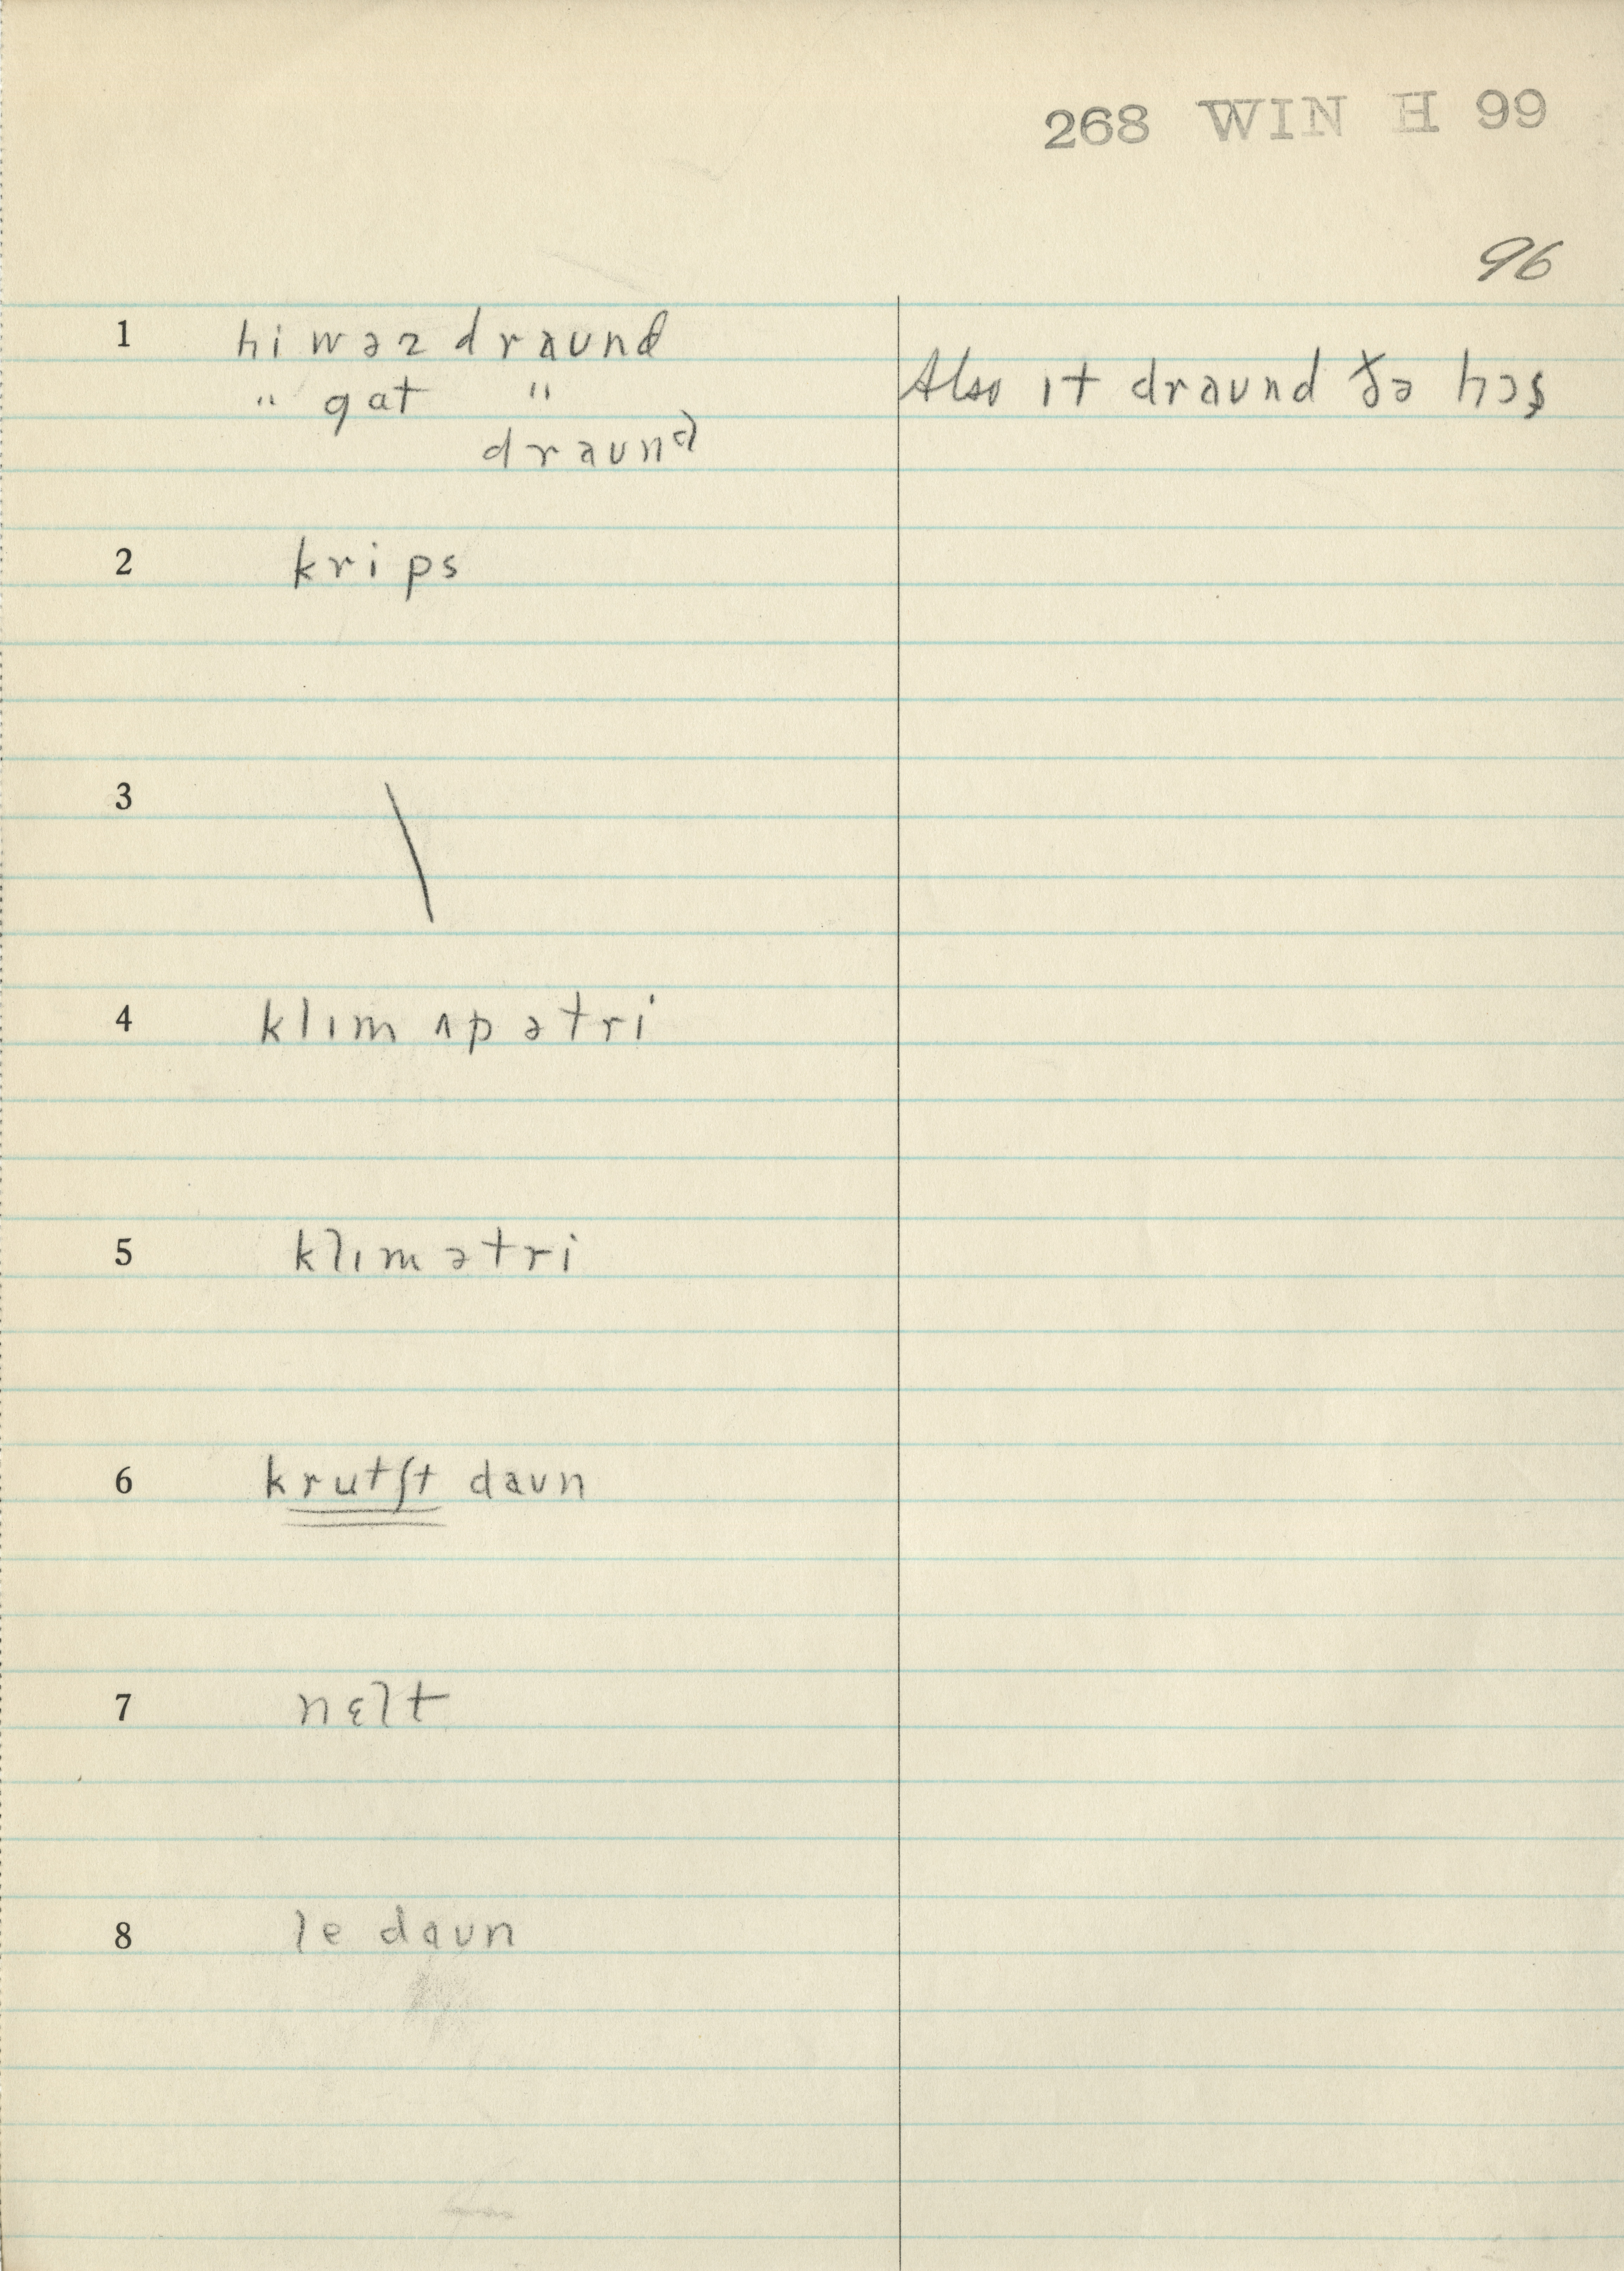 268 WIN H 99
96
1 hi wəz draʊnd
" gat " Also ɪt draʊnd ðə hɔs̩
draʊnᵈ
2 krips
3 \
4 klɪm ʌp ə tri
5 klɪm ə tri
6 krutʃt daʊn
7 nɛlt
8 le daʊn